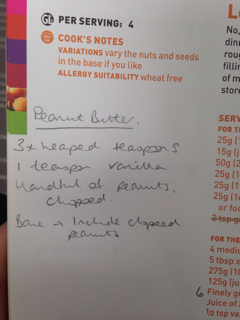 GL PER SERVING: 4
COOK'S NOTES
VARIATIONS vary the nuts and seeds
in the base if you like
ALLERGY SUITABILITY wheat free
Peanut Butter.
3 x heaped teaspoons
1 teaspoon vanilla
Handful of peanuts,
chopped.
Base → Include chopped
peanuts.
No,
dinn
roug
fillin
of m
store
SERV
FOR T
25g (1
15g (
50g (2
25g (1
25g (1
25g (1
or fo
2 tsp g
FOR THE
4 medi
5 tbsp x
275g (10
125g (
6 Finely gr
Juice of
tsp va